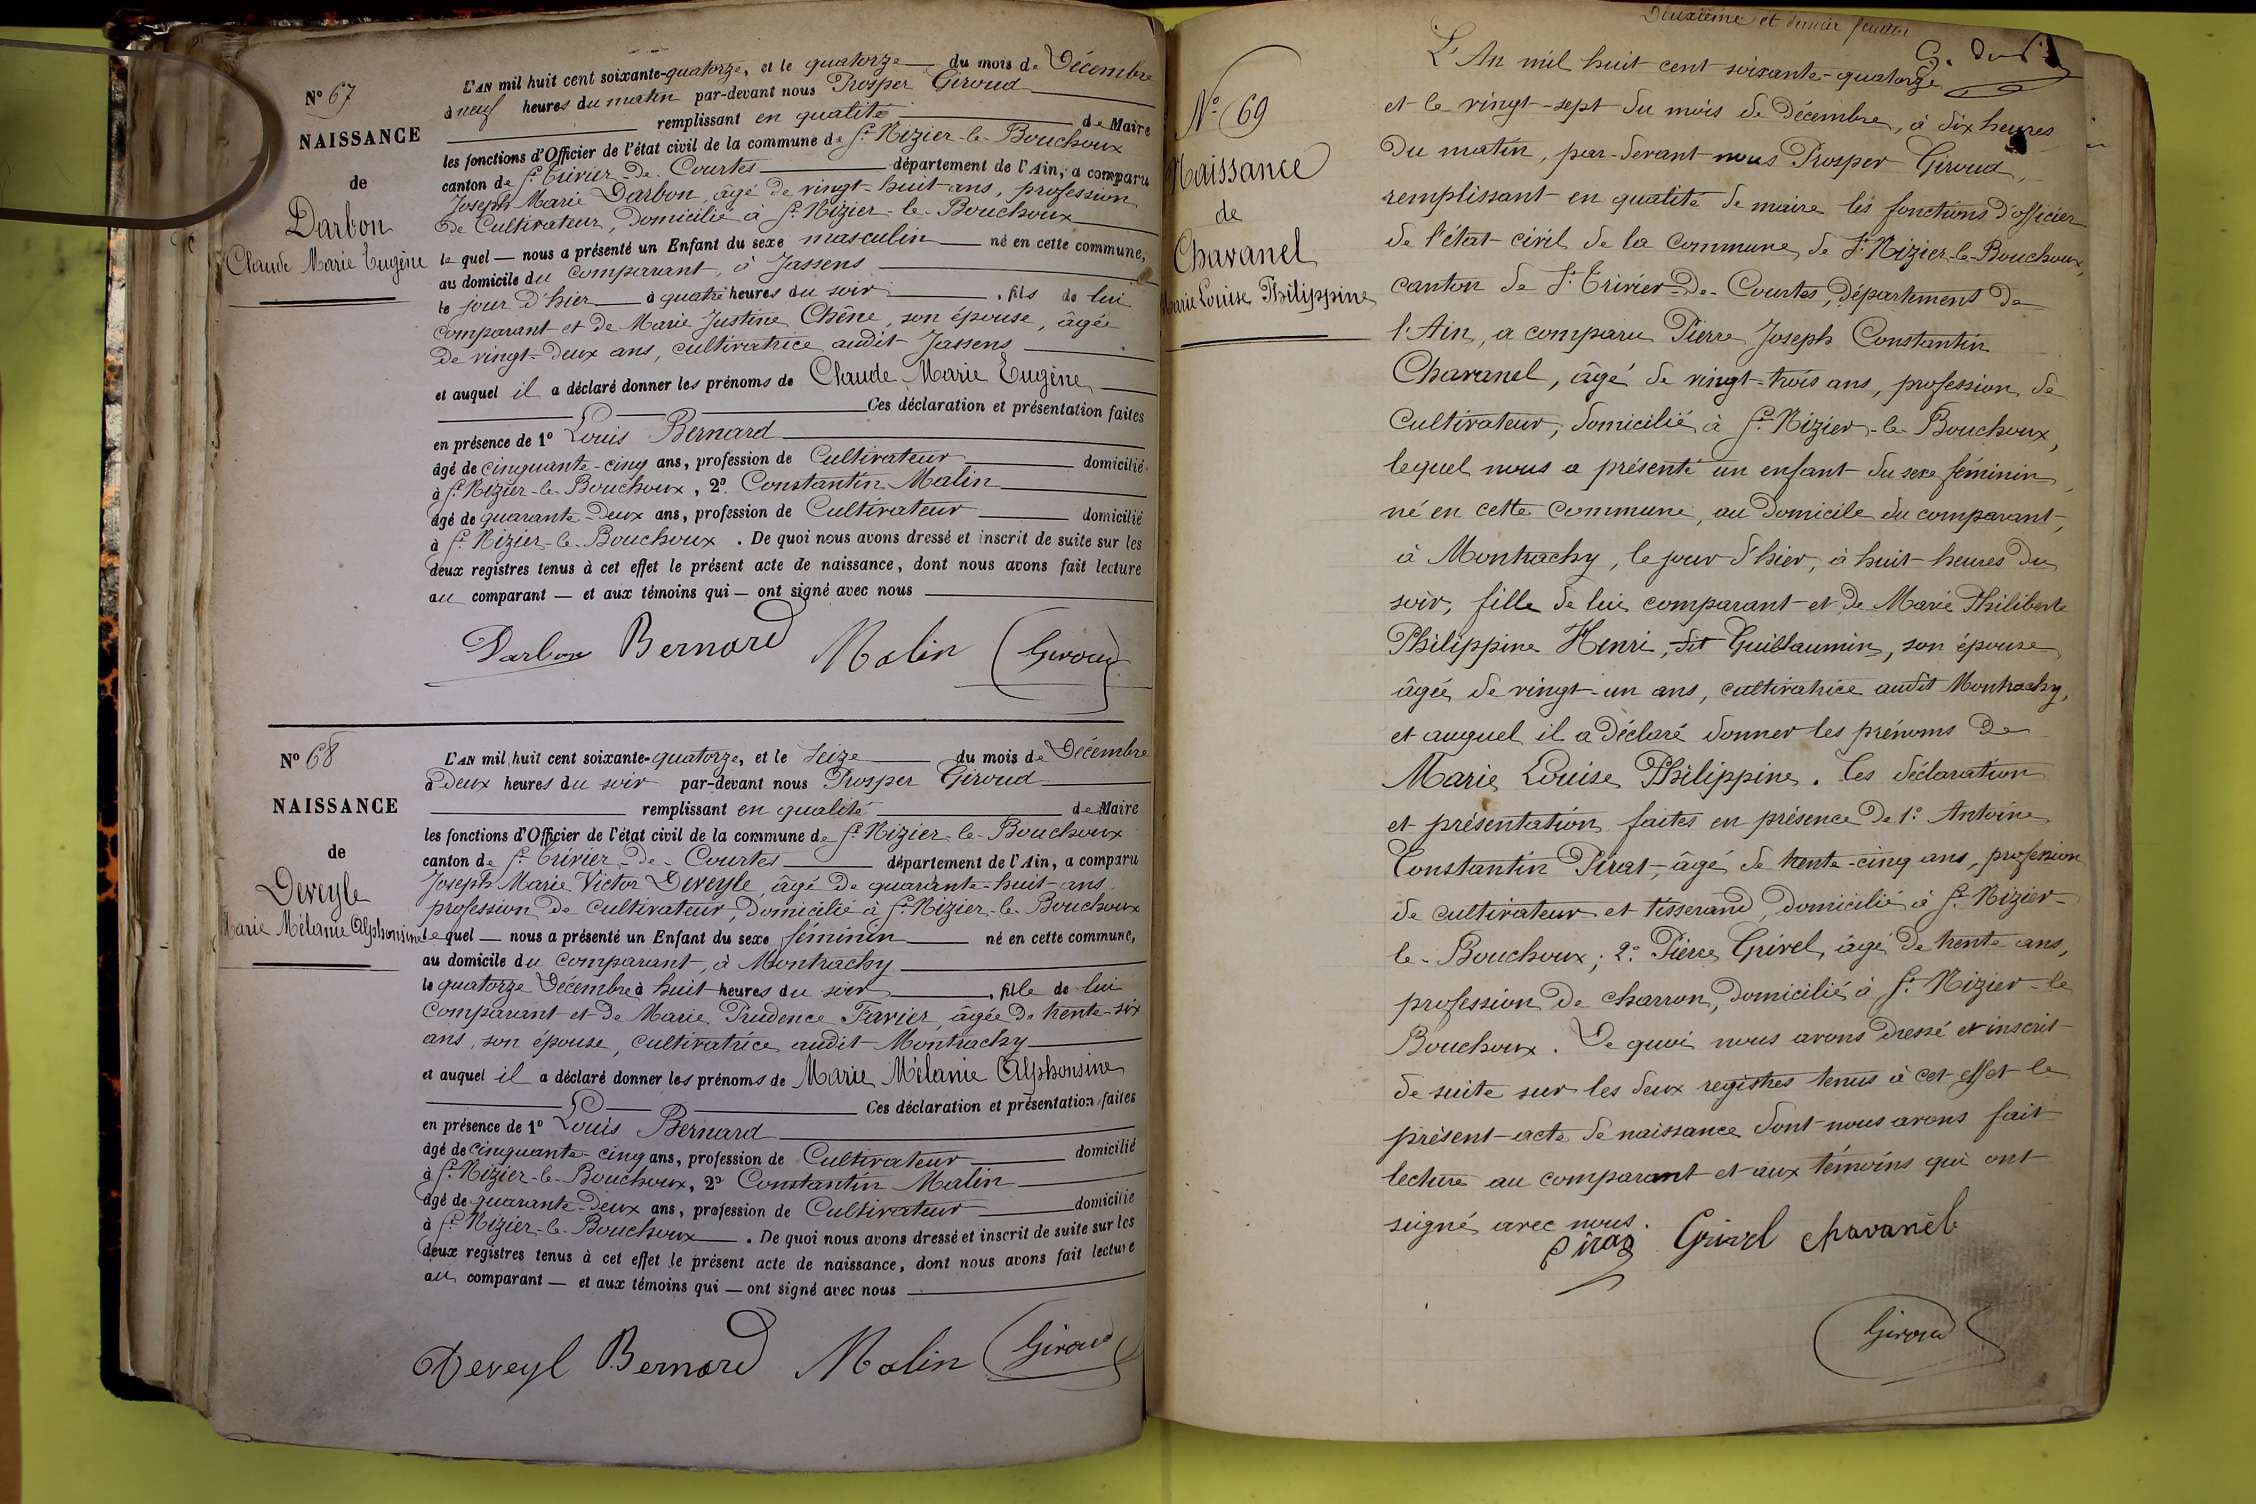 N° 67
NAISSANCE
de
Darbon
Claude Marie Eugène
L'AN mil huit cent soixante-quatorze, et le quatorze du mois de Décembre
à neuf heures du matin par-devant nous Prosper Giroud
remplissant en qualité de Maire
les fonctions d'Officier de l'état civil de la commune de St Nizier-le-Bouchoux
canton de St Trivier-de-Courtes département de l'Ain, a comparu
Joseph Marie Darbon, âgé de vingt-huit ans, profession
de Cultivateur, domicilié à St Nizier-le-Bouchoux
le quel — nous a présenté un Enfant du sexe masculin né en cette commune,
au domicile du comparant, à Jassens
le jour d'hier à quatre heures du soir, fils de lui
comparant et de Marie Justine Chêne, son épouse, âgée
de vingt-deux ans, cultivatrice audit Jassens
et auquel il a déclaré donner les prénoms de Claude Marie Eugène
Ces déclaration et présentation faites
en présence de 1° Louis Bernard
âgé de cinquante-cinq ans, profession de Cultivateur domicilié
à St Nizier-le-Bouchoux, 2° Constantin Malin
âgé de quarante-deux ans, profession de Cultivateur domicilié
à St Nizier-le-Bouchoux. De quoi nous avons dressé et inscrit de suite sur les
deux registres tenus à cet effet le présent acte de naissance, dont nous avons fait lecture
au comparant — et aux témoins qui — ont signé avec nous
Darbon Bernard Malin Giroud
N° 68
NAISSANCE
de
Deveyle
Marie Mélanie Alphonsine
L'AN mil huit cent soixante-quatorze, et le seize du mois de Décembre
à deux heures du soir par-devant nous Prosper Giroud
remplissant en qualité de Maire
les fonctions d'Officier de l'état civil de la commune de St Nizier-le-Bouchoux
canton de St Trivier-de-Courtes département de l'Ain, a comparu
Joseph Marie Victor Deveyle, âgé de quarante-huit ans
profession de cultivateur, domicilié à St Nizier-le-Bouchoux
le quel — nous a présenté un Enfant du sexe féminin né en cette commune,
au domicile du comparant, à Montrachy
le quatorze Décembre à huit heures du soir, fille de lui
comparant et de Marie Prudence Favier, âgée de trente-six
ans, son épouse, cultivatrice audit Montrachy
et auquel il a déclaré donner les prénoms de Marie Mélanie Alphonsine
Ces déclaration et présentation faites
en présence de 1° Louis Bernard
âgé de cinquante-cinq ans, profession de Cultivateur domicilié
à St Nizier-le-Bouchoux, 2° Constantin Malin
âgé de quarante-deux ans, profession de Cultivateur domicilié
à St Nizier-le-Bouchoux. De quoi nous avons dressé et inscrit de suite sur les
deux registres tenus à cet effet le présent acte de naissance, dont nous avons fait lecture
au comparant — et aux témoins qui — ont signé avec nous
Deveyl Bernard Malin Giroud
Deuxième et dernier feuillet
N° 69
Naissance
de
Chavanel
Marie Louise Philippine
L'An mil huit cent soixante-quatorze
et le vingt-sept du mois de Décembre, à dix heures
du matin, par-devant nous Prosper Giroud,
remplissant en qualité de maire les fonctions d'officier
de l'état civil de la Commune de St Nizier-le-Bouchoux,
canton de St Trivier-de-Courtes, département de
l'Ain, a comparu Pierre Joseph Constantin
Chavanel, âgé de vingt-trois ans, profession de
Cultivateur, domicilié à St Nizier-le-Bouchoux,
lequel nous a présenté un enfant du sexe féminin,
né en cette commune, au domicile du comparant,
à Montrachy, le jour d'hier, à huit heures du
soir, fille de lui comparant et de Marie Philiberte
Philippine Henri, dit Guillaumin, son épouse
âgée de vingt-un ans, cultivatrice audit Montrachy,
et auquel il a déclaré donner les prénoms de
Marie Louise Philippine. Ces déclaration
et présentation faites en présence de 1° Antoine
Constantin Pirat, âgé de trente-cinq ans, profession
de cultivateur et tisserand, domicilié à St Nizier-
le-Bouchoux; 2° Pierre Grivel, âgé de trente ans,
profession de charron, domicilié à St Nizier-le
Bouchoux. De quoi nous avons dressé et inscrit
de suite sur les deux registres tenus à cet effet le
présent acte de naissance dont nous avons fait
lecture au comparant et aux témoins qui ont
signé avec nous.
Pirat Grivel chavanel
Giroud